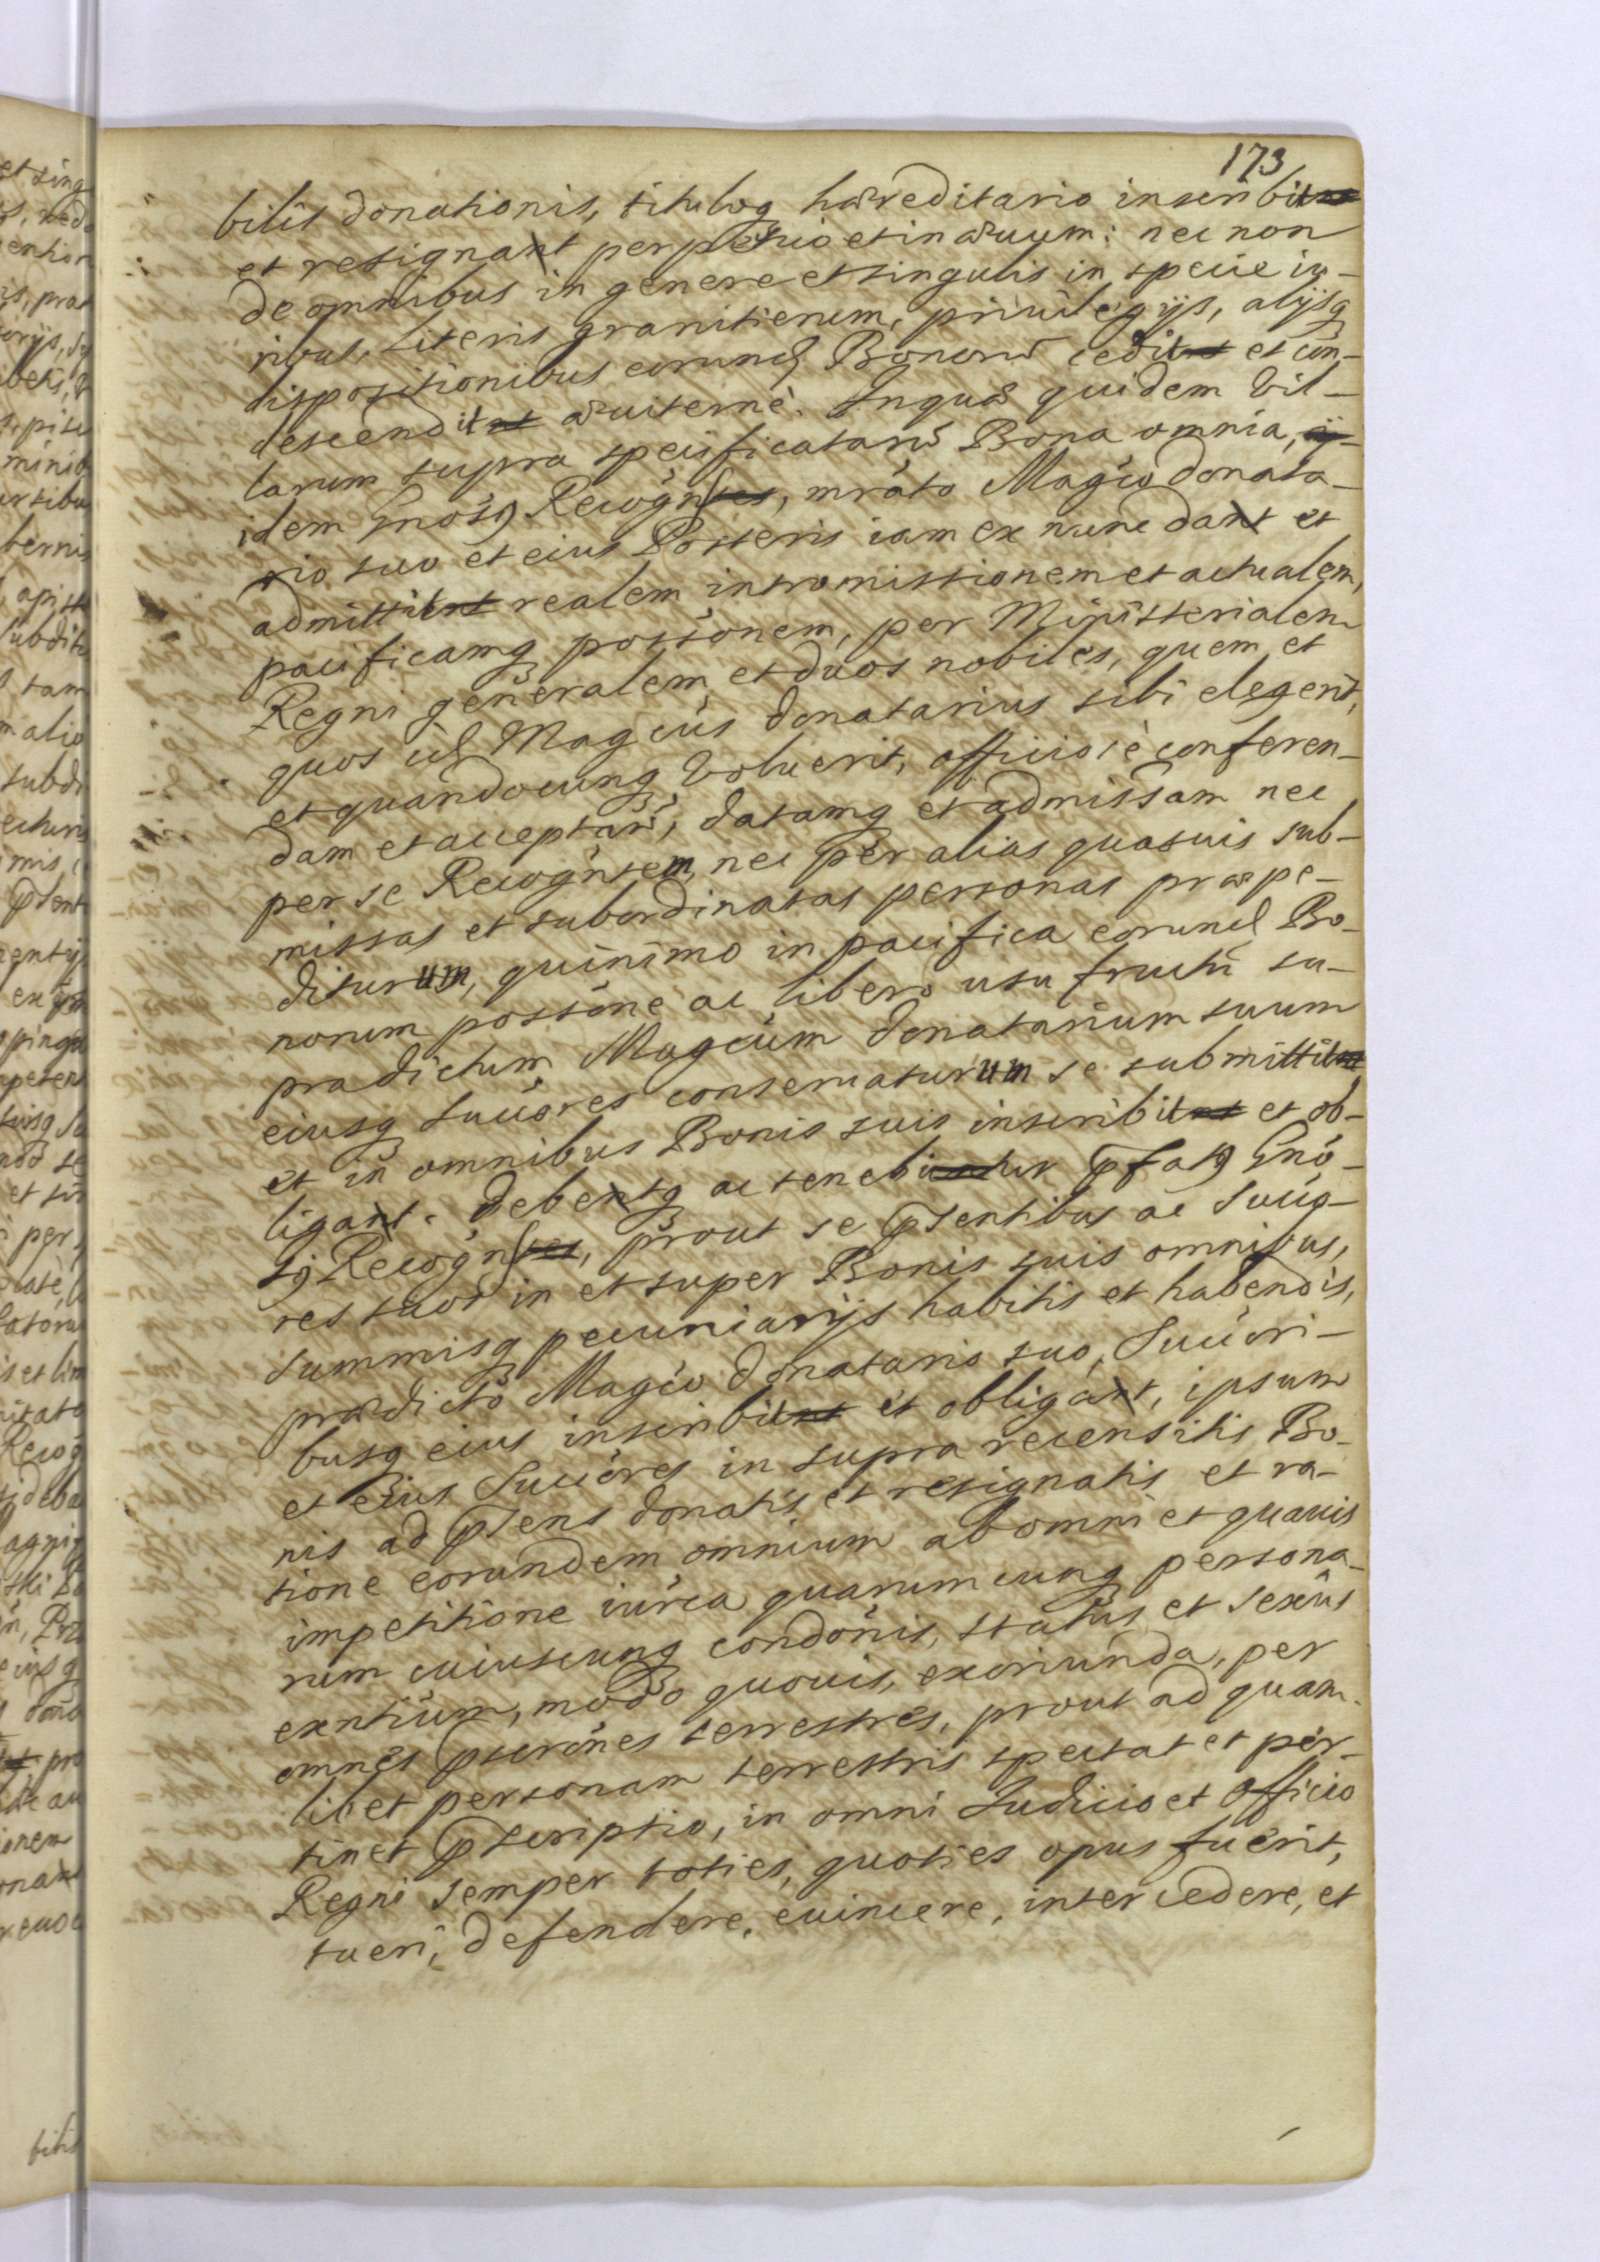 173
bilis donationis, tituloq hæreditario inscribit
et resignat perpetuo et in æuum: nec non
de omnibus in genere et singulis in specie iu-
ribus, literis granitierum, priuilegijs, alijsq
dispositionibus eorund Bonorū cedit et con-
descendit æuiternè. Inquæ quidem Vil-
larum supra specificatarū Bona omnia,
idem Gnosus Recogn̄s, mrato Magco donata-
rio suo et eius Posteris iam ex nunc dat et
admittit realem intromissionem et actualem,
pacificamq possonem, per Ministerialem
Regni generalem et duos nobiles, quem et
quos id Magcus donatarius sibi elegerit,
et quandocunq Voluerit, officiosè conferen-
dam et acceptan̄, datamq et admissam nec
per se Recogntem, nec per alias quasuis sub-
missas et subordinatas personas præpe-
diturum, quinimo in pacifica eorund Bo-
norum possone ac libero usu fructu su-
pradictum Magcum donatarium suum
eiusq Succores conseruaturum se submittit
et in omnibus Bonis suis inscribit et ob-
ligat. Debetq ac tenebitur pfatus Gno-
sus Recogn̄s, prout se psentibus ac Succo-
res suos in et super Bonis suis omnibus,
summisq pecuniarijs habitis et habendis,
prædicto Magco donatario suo, Succori-
busq eius inscribit et obligat, ipsum
et eius Succores in supra recensitis Bo-
nis ad psens donatis et resignatis et ra-
tione eorundem omnium ab omni et quauis
impetitione iurca quarumcunq persona-
rum cuiuscunq condonis, status et sexûs
exntium, modo quouis, exoriunda, per
omnes pscrones terrestres, prout ad quam-
libet personam terrestris spectat et per-
tinet pscriptio, in omni Iudicio et Officio
Regni semper toties, quoties opus fuerit,
tueri, defendere, euincere, intercedere, et